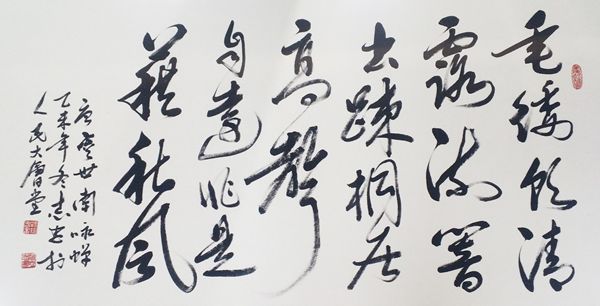 垂緌飲清
露流響
出踈桐居
高聲
自遠非是
藉秋風
唐虞世南咏蟬
乙未年冬志於
人民大會堂